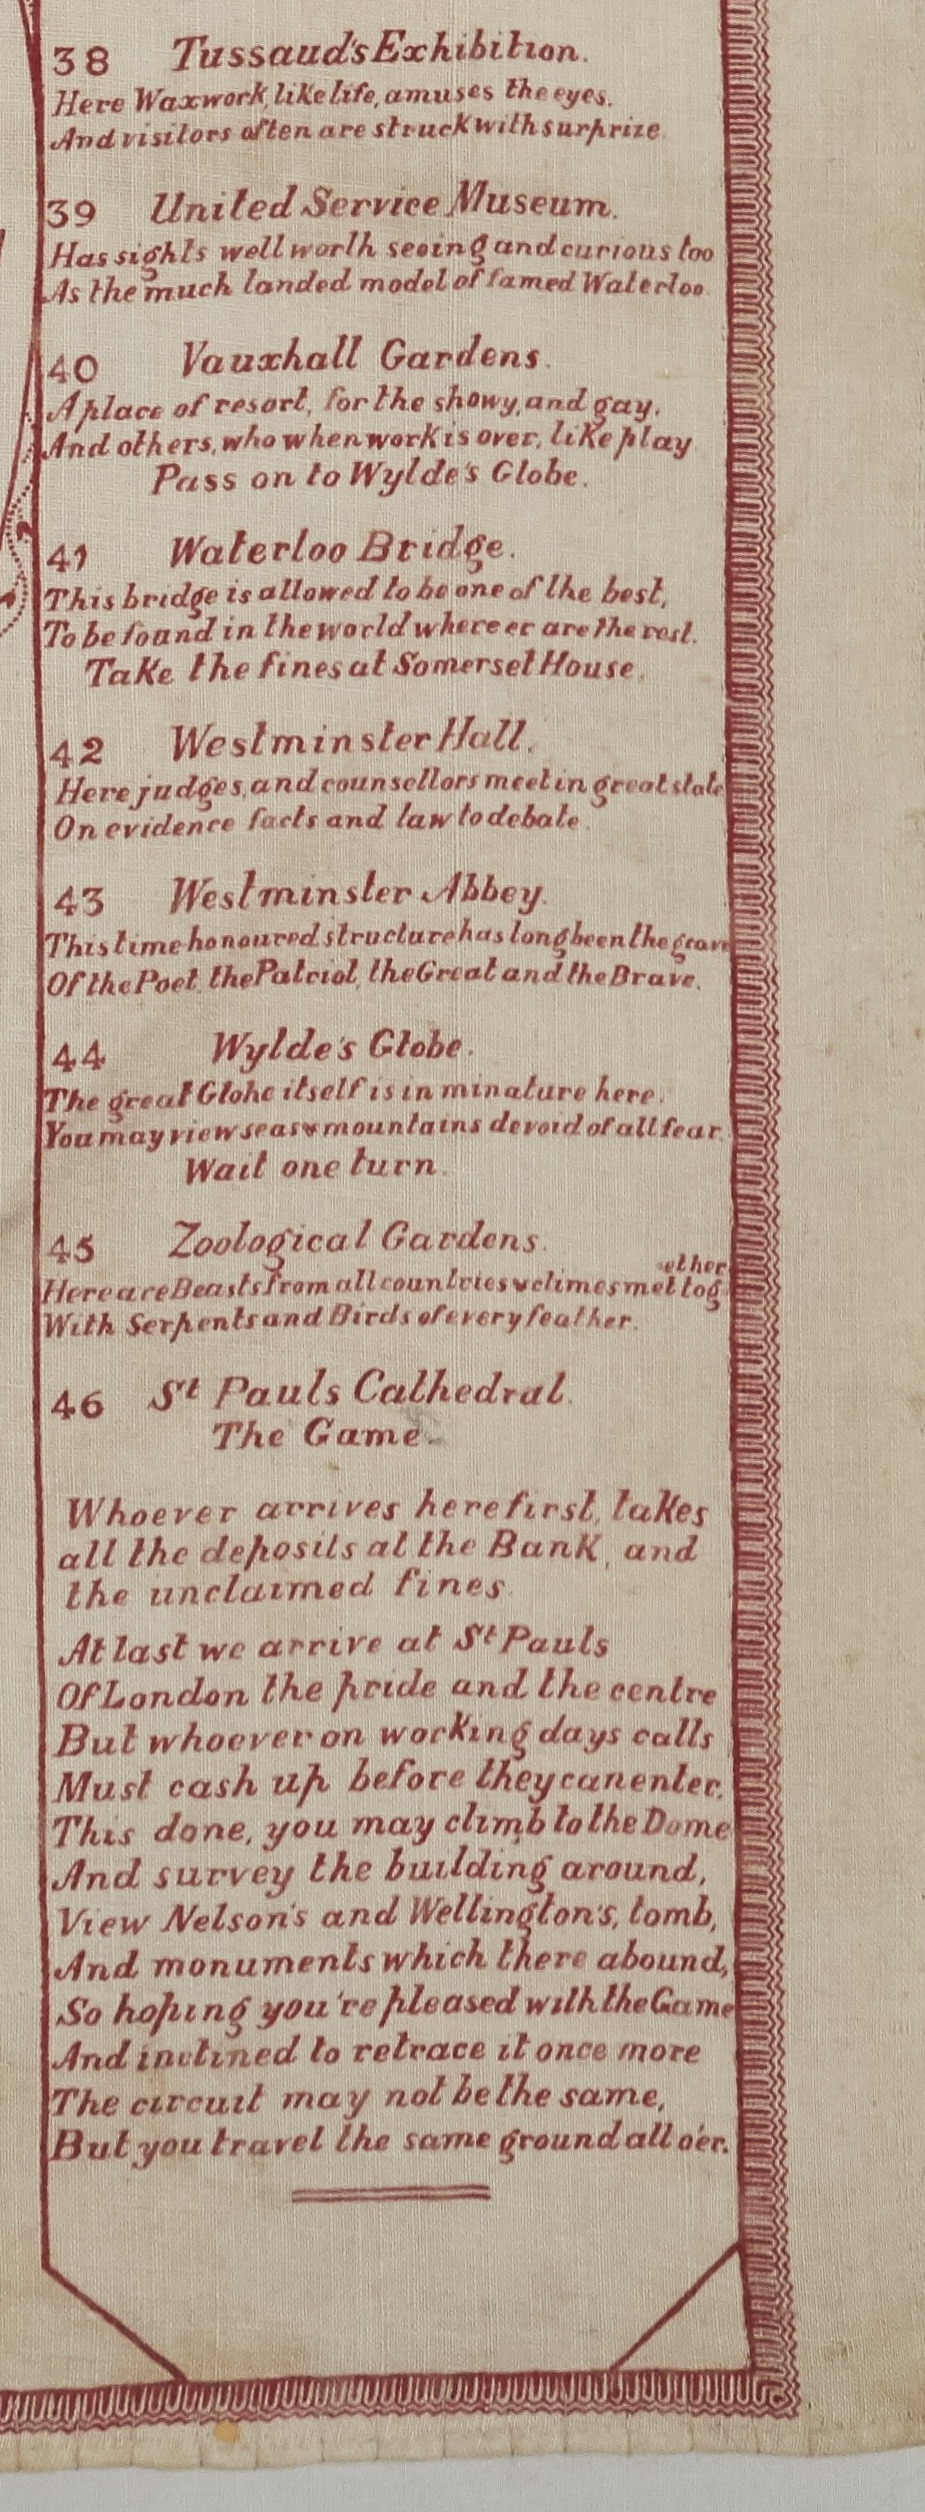 38 Tussaud's Exhibition.
Here Waxwork, like life, amuses the eyes.
And visitors often are struck with surprize
39 United Service Museum.
Has sights well worth seeing and curious too
As the much lauded model of famed Waterloo.
40 Vauxhall Gardens.
A place of resort, for the showy, and gay.
And others, who when work is over, like play
Pass on to Wylde's Globe.
41 Waterloo Bridge.
This bridge is allowed to be one of the best,
To be found in the world where er are the rest.
Take the fines at Somerset House.
42 Westminster Hall.
Here judges, and counsellors meet in great state
On evidence facts and law to debate.
43 Westminster Abbey.
This time-honoured structure has long been the grave
Of the Poet, the Patriot, the Great and the Brave.
44 Wylde's Globe.
The great Globe itself is in minature here.
You may view seas & mountains devoid of all fear.
Wait one turn.
45 Zoological Gardens.
ether
Here are Beasts from all countries & climes met tog
With Serpents and Birds of every feather.
46 St Pauls Cathedral.
The Game.
Whoever arrives here first, takes
all the deposits at the Bank, and
the unclaimed fines.
At last we arrive at St Pauls
Of London the pride and the centre
But whoever on working days calls
Must cash up before they can enter.
This done, you may climb to the Dome
And survey the building around,
View Nelson's and Wellington's, tomb,
And monuments which there abound,
So hoping you're pleased with the Game
And inclined to retrace it once more
The circuit may not be the same,
But you travel the same ground all o'er.